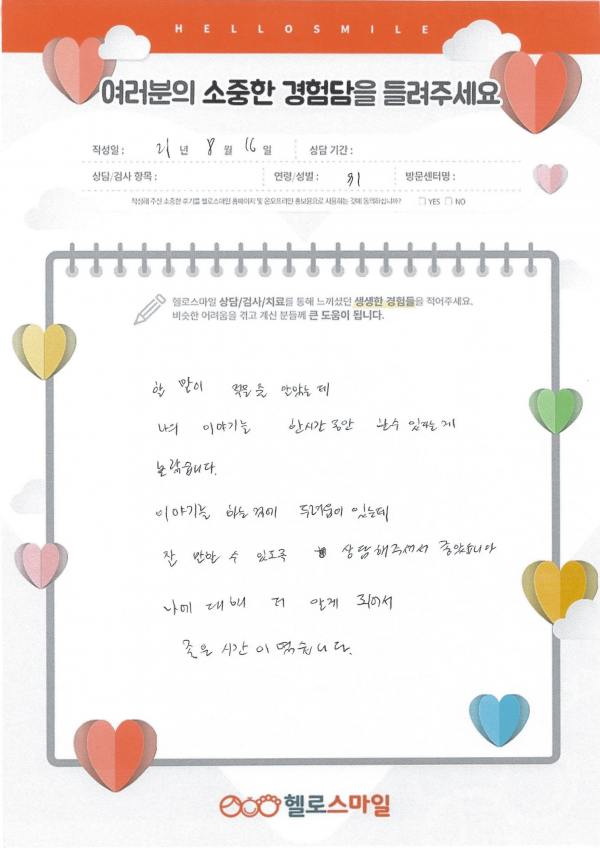 HELLOSMILE
여러분의 소중한 경험담을 들려주세요
작성일 : 21 년 8 월 16 일 상담 기간 :
상담/검사 항목 : 연령/성별 : 방문센터명 :
작성해 주신 소중한 후기를 헬로스마일 홈페이지 및 온오프라인 홍보용으로 사용하는 것에 동의하십니까? □ YES □ NO
헬로스마일 상담/검사/치료를 통해 느끼셨던 생생한 경험들을 적어주세요.
비슷한 어려움을 겪고 계신 분들께 큰 도움이 됩니다.
할 말이 없을 줄 알았는데
나의 이야기를 한시간 동안 할수 있다는게
놀랐습니다.
이야기를 하는 거에 두려움이 있는데
잘 말할 수 있도록 상담해주셔서 좋았습니다
나에 대해 더 알게 되어서
좋은 시간이였습니다.
헬로스마일